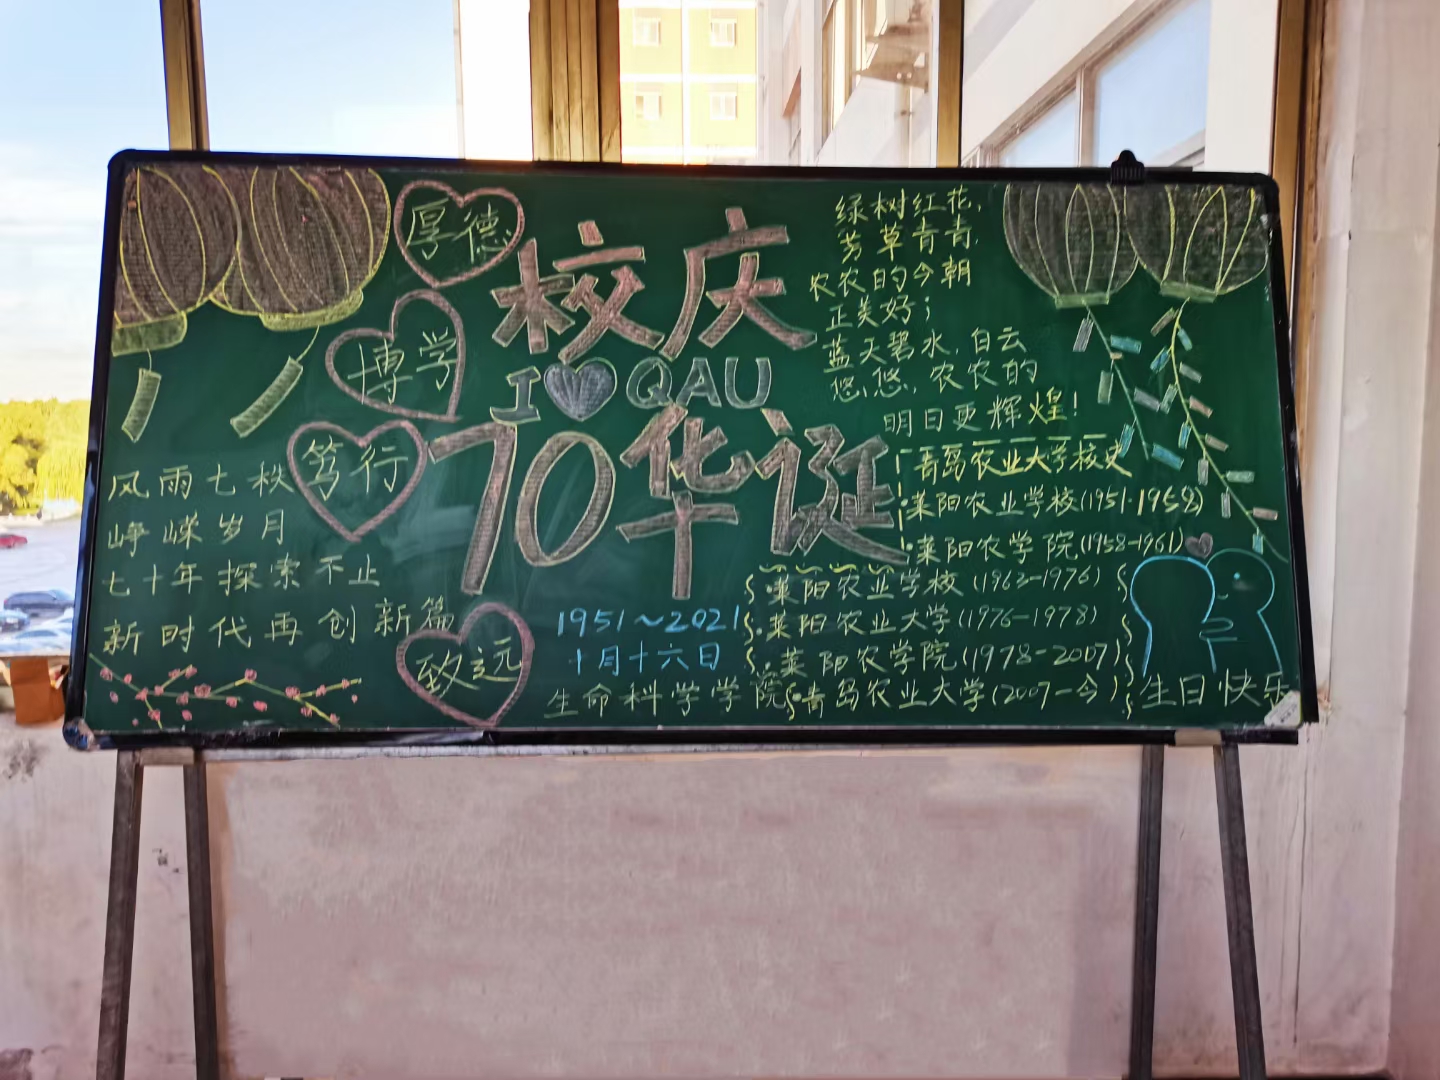 厚德
博学
笃行
致远
校庆
I QAU
70华诞
绿树红花,
芳草青青,
农农的今朝
正美好；
蓝天碧水,白云
悠悠,农农的
明日更辉煌!
风雨七秩
峥嵘岁月
七十年探索不止
新时代再创新篇
青岛农业大学校史
·莱阳农业学校(1951-1958)
·莱阳农学院(1958-1961)
·莱阳农业学校(1963-1976)
·莱阳农业大学(1976-1978)
·莱阳农学院(1978-2007)
·青岛农业大学(2007-今)
1951~2021
十月十六日
生命科学学院
生日快乐